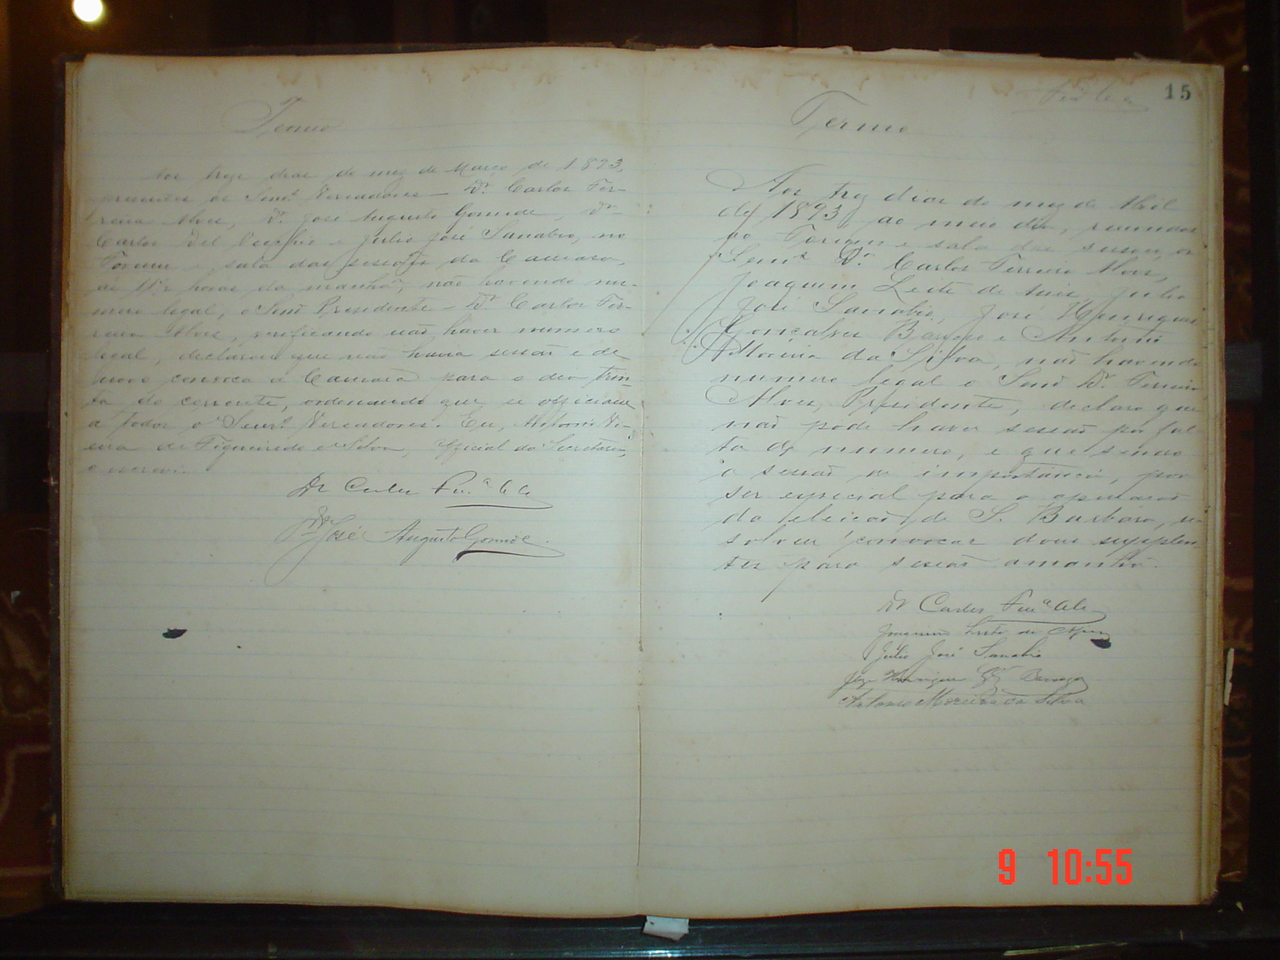 Termo
Aos treze dias do mez de Março de 1893,
presentes os Senr.s Vereadores — Dr. Carlos Fer-
reira Alves, Dr. José Augusto Gomide, Dr.
Carlos Del Cecchio e Julio José Sanabio, no
Forum e sala das sessões da Camara,
horas da manhã, não havendo nu-
mero legal, o Senr. Presidente — Dr. Carlos Fer-
reira Alves, verificando não haver numero
legal, declarou que não havia sessão e de
novo convoca a Camara para o dia trin-
ta do corrente, ordenando que se officiasse
a todos os Senr.s Vereadores. Eu, Antonio Vi-
eira de Figueiredo e Silva, Official da Secretaria,
o escrevi.
Dr Carlos Ferr.a
Dr. José Augusto Gomide
15
Termo
Aos trez dias do mez de Abril
de 1893 ao meio dia, reunidos
no Forum e sala das sessões, os
Senr.s Dr. Carlos Ferreira Alves,
Joaquim Leite de Julio
José Sanabio, José Henriques
Gonçalves Barroso e Antonio
Moreira da Silva, não havendo
numero legal o Senr. Dr. Ferreira
Alves, Presidente, declara que
não pode haver sessão por fal-
ta de numero, e que sendo
a sessão de importancia, por
ser especial para a apuração
da eleição de S. Barbara, re-
solveu convocar dous supplen-
tes para sessão amanhã.
Dr Carlos Ferr.a
Joaquim Leite de
Julio José Sanabio
José Henriques Glz Barroso
Antonio Moreira da Silva
9 10:55